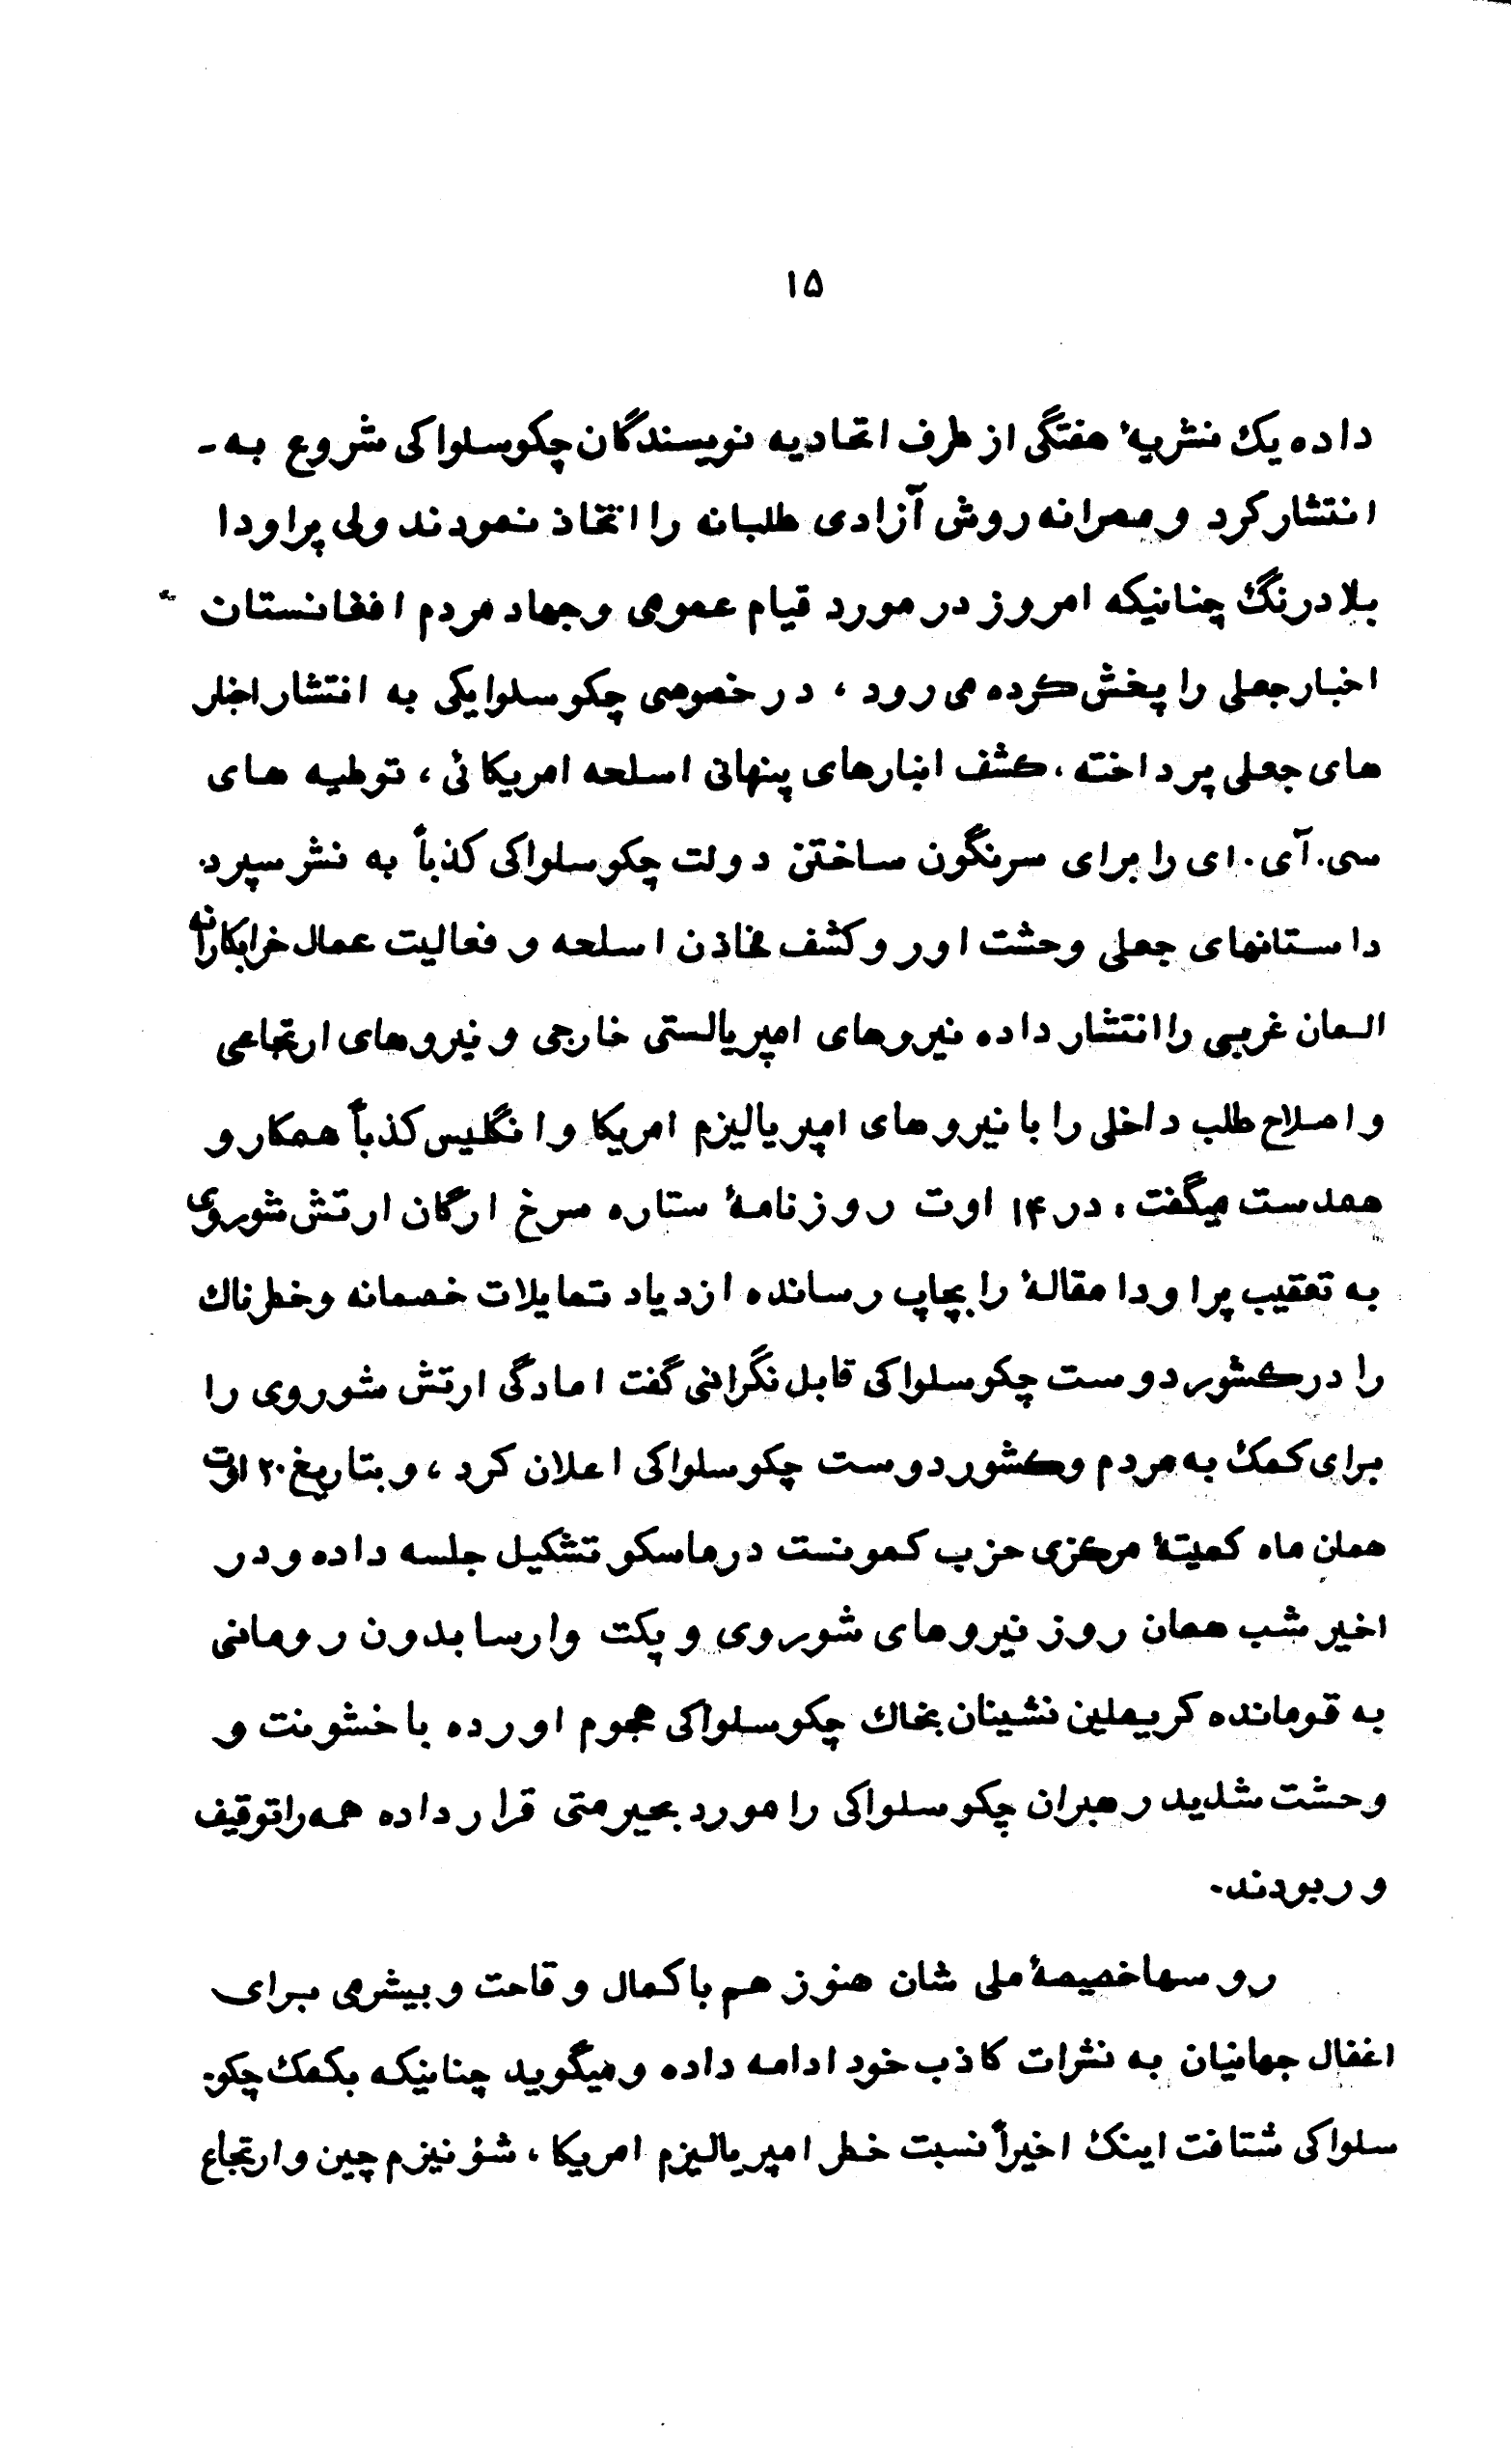 ۱۵
داده یک نشریهٔ هفتگی از طرف اتحادیه نویسندگان چکوسلواکی شروع به -
انتشار کرد و مصرانه روش آزادی طلبانه را اتخاذ نمودند ولی پراودا
بلادرنگ چنانیکه امروز در مورد قیام عمومی وجهاد مردم افغانستان
اخبار جعلی را پخش کرده می رود ، در خصوصی چکوسلوایکی به انتشار اخبار
های جعلی پرداخته ، کشف انبارهای پنهانی اسلحه امریکائی ، توطیه های
سی . آی . ای را برای سرنگون ساختن دولت چکوسلواکی کذباً به نشر سپرد .
داستانهای جعلی وحشت اور وکشف مخاذن اسلحه و فعالیت عمال خرابکارانه
المان غربی را انتشار داده نیروهای امپریالستی خارجی و نیروهای ارتجاعی
واصلاح طلب داخلی را با نیروهای امپریالیزم امریکا وانگلیس کذباً همکار و
همدست میگفت . در ۱۴ اوت روزنامهٔ ستاره سرخ ارگان ارتش شوروی
به تعقیب پراودا مقالهٔ را بچاپ رسانده ازدیاد تمایلات خصمانه وخطرناک
را درکشور دوست چکوسلواکی قابل نگرانی گفت امادگی ارتش شوروی را
برای کمک به مردم وکشور دوست چکوسلواکی اعلان کرد ، و بتاریخ ۲۰ اوت
همان ماه کمیتهٔ مرکزی حزب کمونست درماسکو تشکیل جلسه داده و در
اخیر شب همان روز نیروهای شوروی و پکت وارسا بدون رومانی
به قومانده کریملین نشینان بخاک چکوسلواکی هجوم اورده با خشونت و
وحشت شدید رهبران چکوسلواکی را مورد بحیرمتی قرار داده همه راتوقیف
و ربودند .
روسها خصیصهٔ ملی شان هنوز هم با کمال وقاحت وبیشرمی برای
اغفال جهانیان به نشرات کاذب خود ادامه داده ومیگوید چنانیکه بکمک چکو-
سلواکی شتافت اینک اخیراً نسبت خطر امپریالیزم امریکا ، شؤنیزم چین وارتجاع